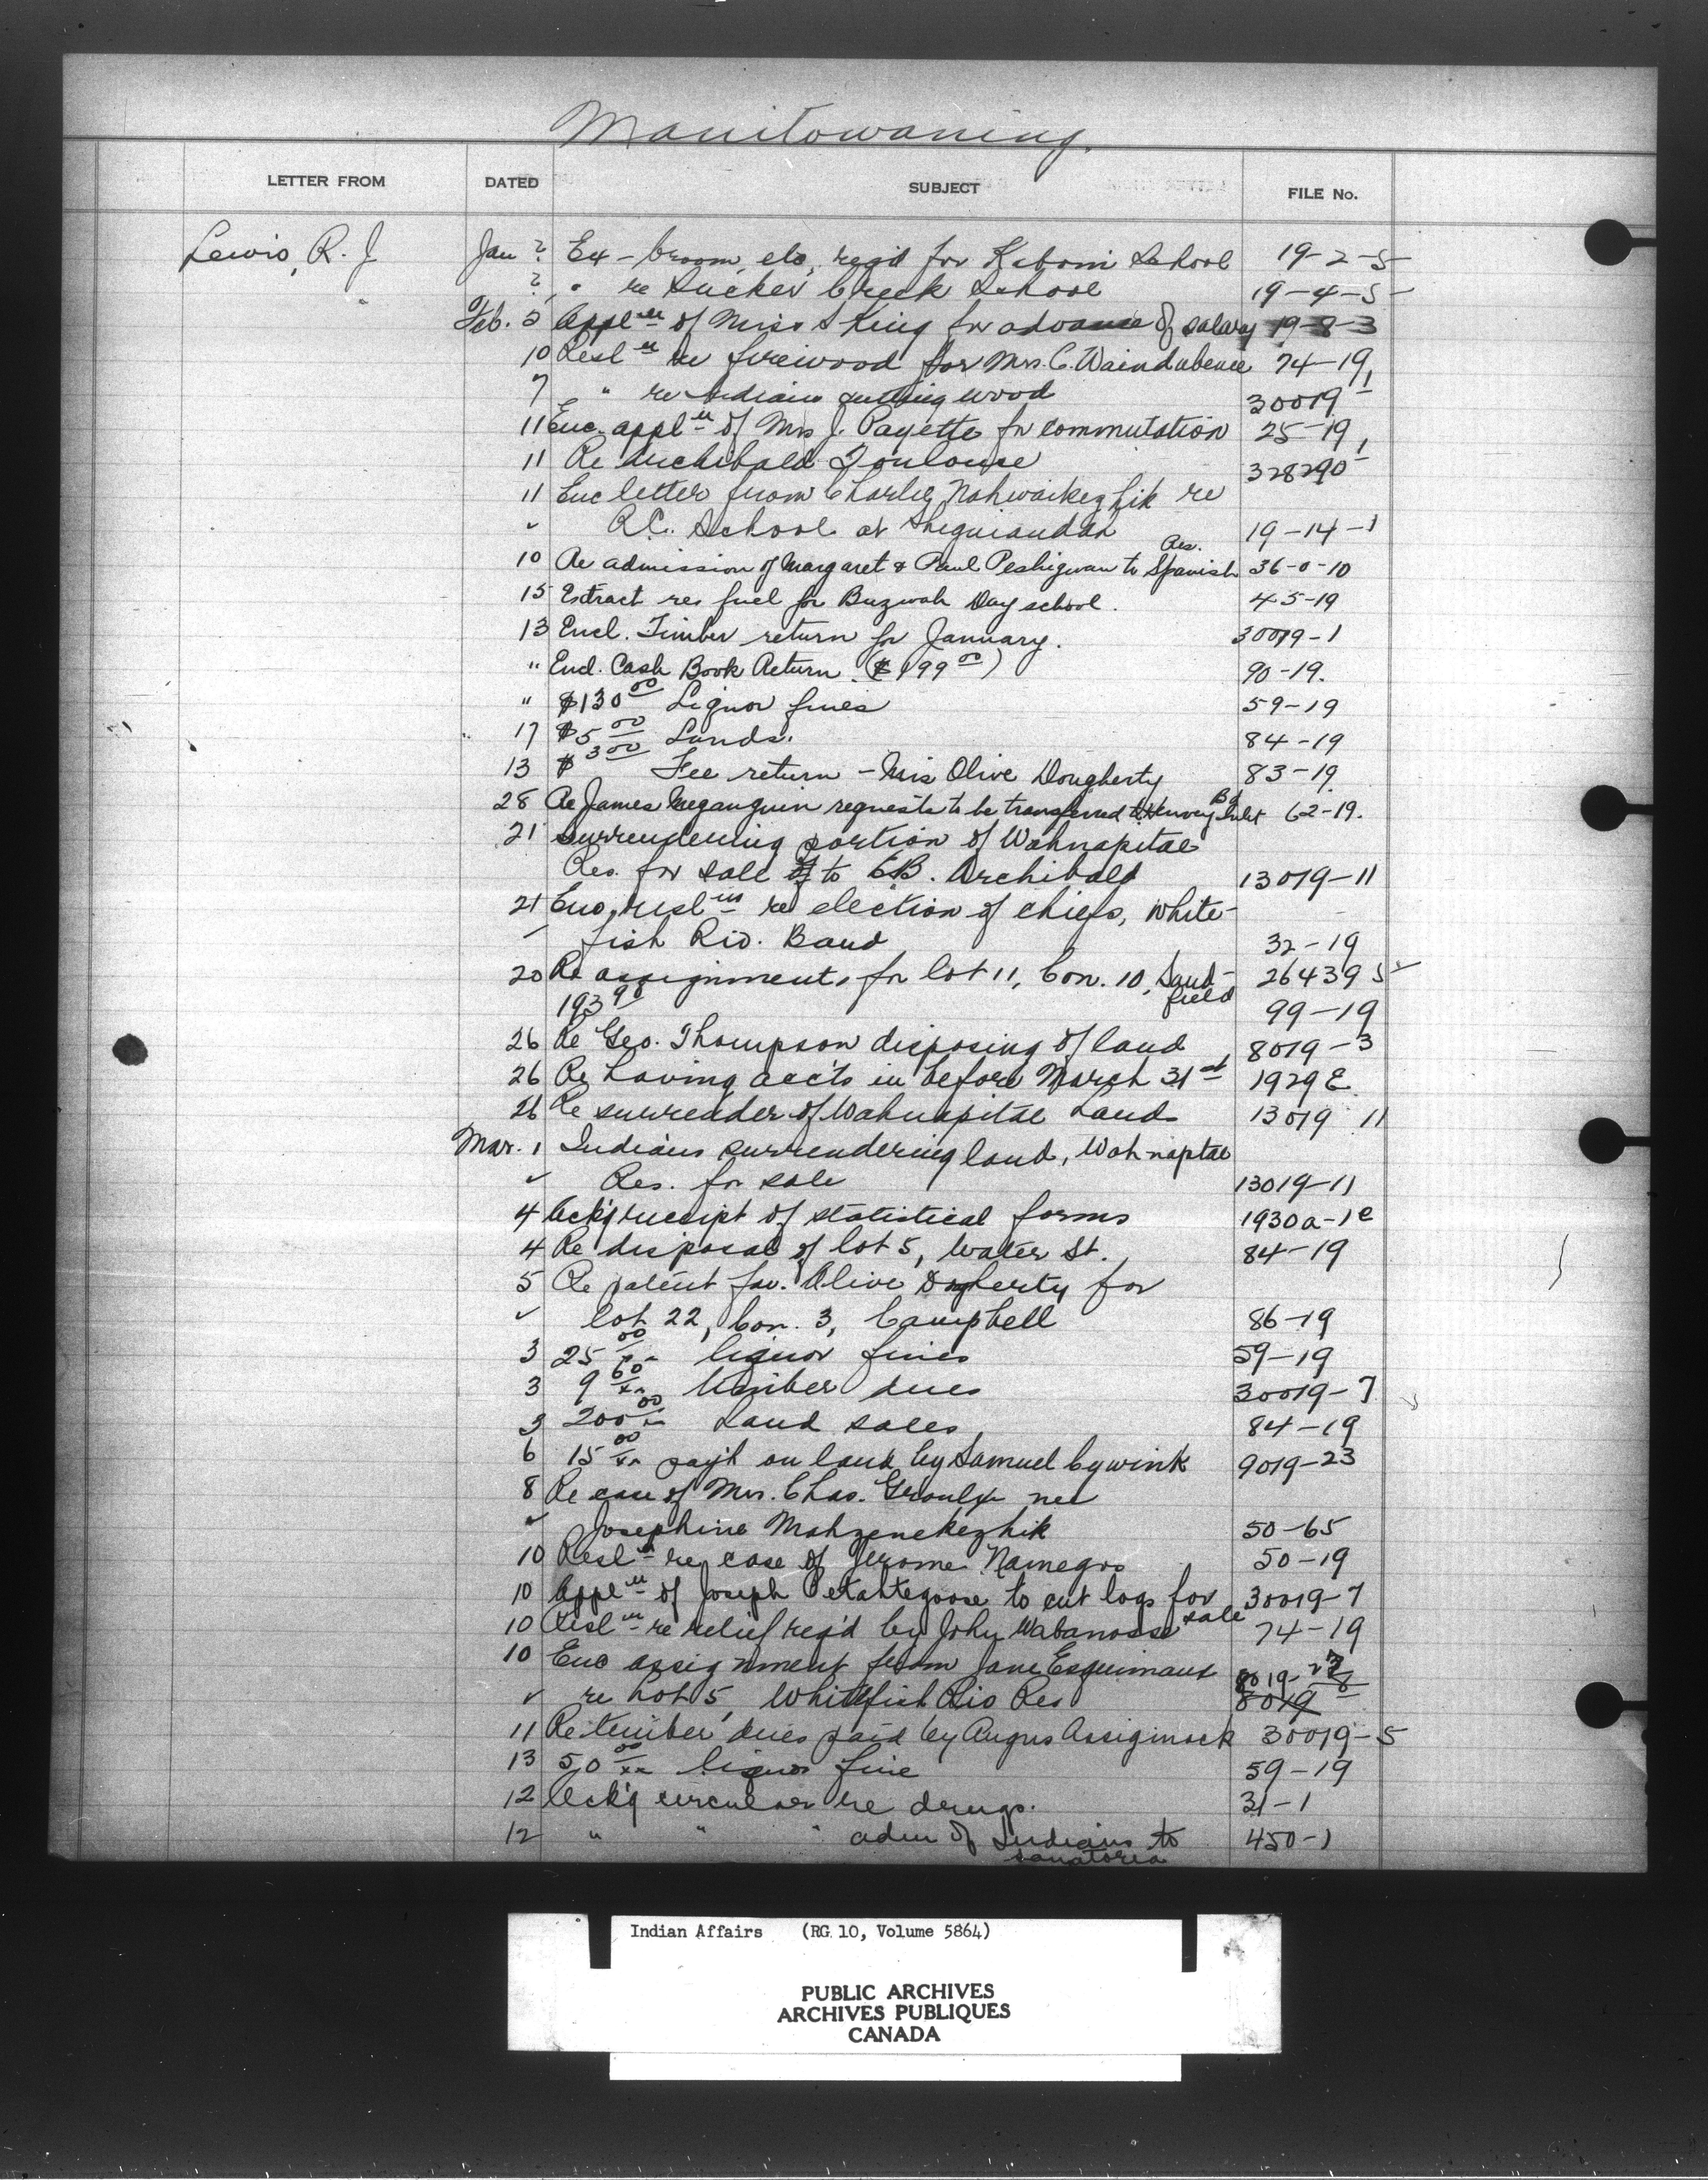 Manitowaning.
LETTER FROM DATED SUBJECT FILE No.
Lewis, R. J Jan ? Ex - broom, etc, reqd for Kaboni School 19-2-5
? " re Sucker Creek School 19-4-5
Feb. 5 Appl'n of Miss S King for advance of salary 19-8-3
10 Resl'n re firewood for Mrs. C. Waindubence 74-19
7 " re Indians cutting wood 30019-1
11 Enc. appl'n of Mrs J. Payette for commutation 25-19
11 Re Archibald Toulouse 328290
11 Enc letter from Charley Nahwaikezhik re
✓ R.C. School at Sheguiandah 19-14-1
10 Re admission of Margaret & Paul Peshigwan to Spanish Res. 36-0-10
15 Extract res fuel for Buzwah Day school. 45-19
13 Encl. Timber return for January. 30019-1
" Encl. Cash Book Return. ($199.00) 90-19.
" $130.00 Liquor fines 59-19
17 $5.00 Lands. 84-19
13 $3.00 Fee return - Mrs Olive Dougherty 83-19
28 Re James Meganquin requests to be transferred to Henvey Inlet Bd 62-19.
21 Surrendering portion of Wahnapitae
Res. for sale to E.B. Archibald 13019-11
21 Enc. resl'ns re election of chiefs, White-
fish Riv. Band 32-19
20 Re assignments for lot 11, Con. 10, Sand- 264395
field
193 99-19
26 Re Geo. Thompson disposing of land 8019-3
26 Re having acc'ts in before March 31st 1929E
26 Re surrender of Wahnapitae Land 13019 11
Mar. 1 Indians surrendering land, Wahnaptae
✓ Res. for sale 13019-11
4 Ack'g receipt of statistical forms 1930a-1e
4 Re disposal of lot 5, Water St. 84-19
5 Re patent fav. Olive Dogherty for
✓ lot 22, Con. 3, Campbell 86-19
3 25 00/xx liquor fines 59-19
3 9 60/xx timber dues 30019-7
3 200 00/xx Land sales 84-19
6 15 00/xx pay't on land by Samuel Cywink 9019-23
8 Re case of Mrs. Chas. Groulx nee
✓ Josephine Mahzenekezhik 50-65
10 Resl'n re case of Jerome Namegos 50-19
10 Appl'n of Joseph Petahtegoose to cut logs for 30019-7
sale
10 Resl'n re relief req'd by John Wabanosse 74-19
10 Enc assignment from Jane Esquimaux 8019-
✓ re Lot 5, Whitefish Riv Res 8019
11 Re timber dues paid by Angus Assiginack 30019-5
13 50 00/xx liquor fine 59-19
12 Ack'g circular re drugs. 31-1
12 " " " adm of Indians to 450-1
sanatorea
Indian Affairs (RG 10, Volume 5864)
PUBLIC ARCHIVES
ARCHIVES PUBLIQUES
CANADA